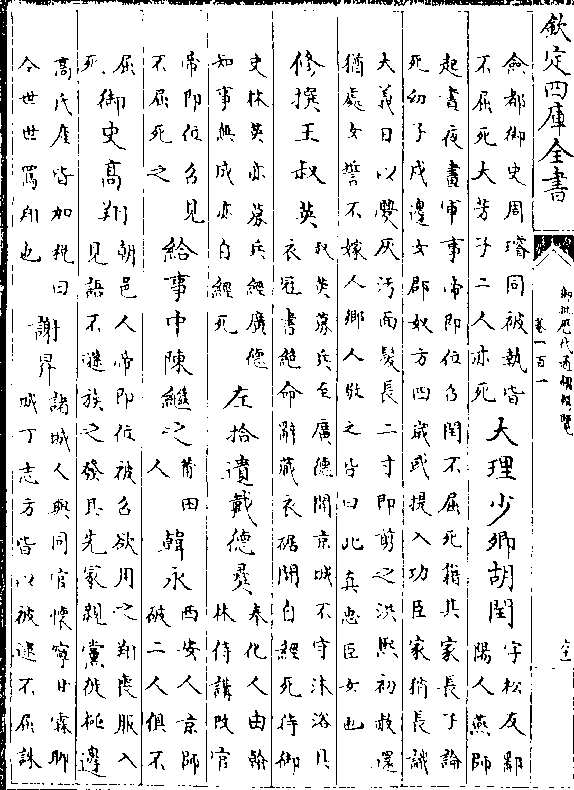 欽定四庫全書
御批歷代通鑑輯覽
卷一百一
僉都御史周璿同被執皆
不屈死大芳子二人亦死
大理少卿胡閏
字松友鄱
陽人燕師
起晝夜畫軍事帝即位召閏不屈死籍其家長子論
死幼子戍邊女郡奴方四歲或提入功臣家稍長識
大義日以爨灰汚面髮長二寸即剪之洪熙初赦還
猶處女誓不嫁人鄉人敬之皆曰此真忠臣女也
修撰王叔英
叔英募兵至廣德聞京城不守沐浴具
衣冠書絶命辭藏衣裾間自經死侍御
史林英亦募兵經廣德
知事無成亦自經死
左拾遺戴德彞
奉化人由翰
林侍講改官
帝即位召見
不屈死之
給事中陳繼之
莆田
人
韓永
西安人京師
破二人俱不
屈
死
御史高翔
朝邑人帝即位被召欲用之翔喪服入
見語不遜族之發其先冢親黨徙極邊
高氏産皆加稅曰
令世世罵翔也
謝昇
諸城人與同官懷寧甘霖聊
城丁志方皆以被逮不屈誅